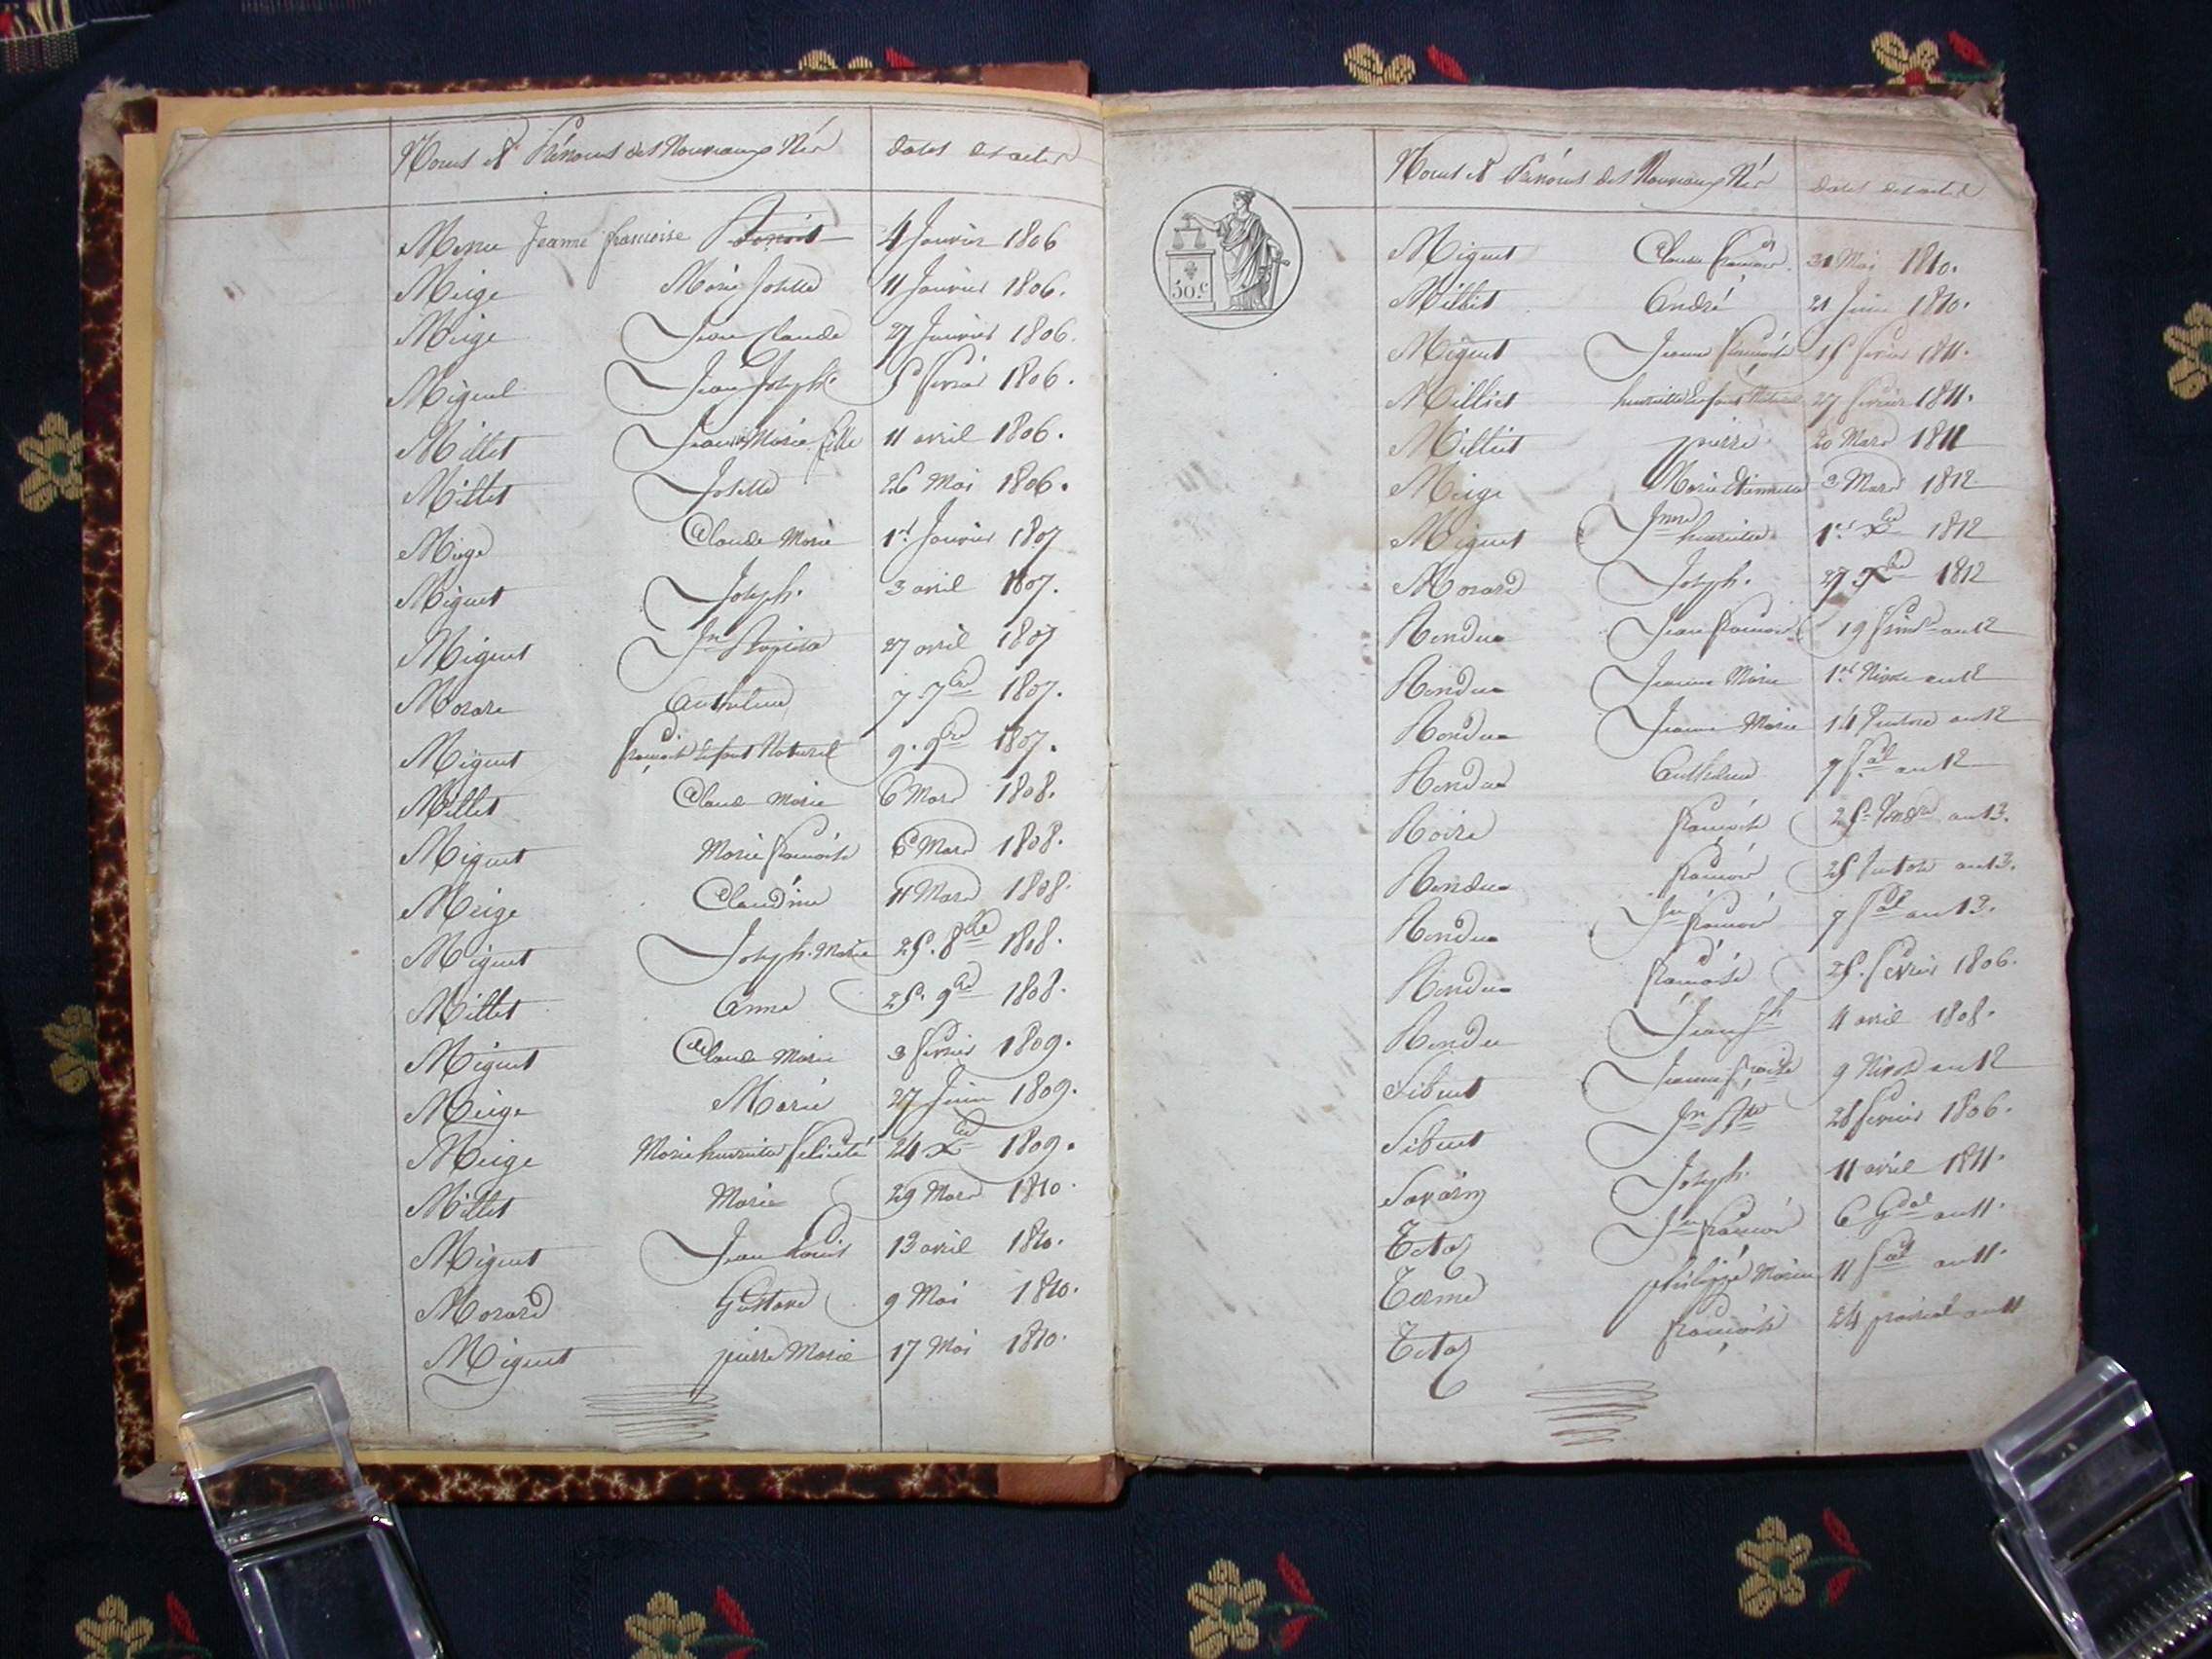 Noms et Prénoms des Nouveaux Nés Dates des actes
Menu Jeanne françoise Benoit 4 Janvier 1806
Meige Marie Josette 11 Janvier 1806.
Meige Jean Claude 27 Janvier 1806.
Miguet Jean Joseph 5 février 1806.
Millet Jeanne Marie fille 11 avril 1806.
Millet Josette 26 Mai 1806.
Miege Claude Marie 1er Janvier 1807
Miguet Joseph. 3 avril 1807.
Miguet Jn Baptiste 27 avril 1807
Morare Anthelme 7 7bre 1807.
Miguet françois Enfant Naturel 9. 9bre 1807.
Millet Claude Marie 6 Mars 1808.
Miguet Marie françoise 6 Mars 1808.
Meige Claudine 11 Mars 1808.
Miguet Joseph. Marie 25. 8bre 1808.
Millet Anne 25. 9bre 1808.
Miguet Claude Marie 3 février 1809.
Meige Marie 27 Juin 1809.
Meige Marie henriette felicité 24 Xbre 1809.
Millet Marie 29 Mars 1810.
Miguet Jean Louis 13 avril 1810.
Morard Gustave 9 Mai 1810.
Miguet pierre Marie 17 Mai 1810.
Noms et Prénoms des Nouveaux Nés Dates des actes
50 c.
Miguet Claude françois 31 Mai 1810.
Millet André 21 Juin 1810.
Miguet Jeanne françoise 15 février 1811.
Milliet henriette Enfant Naturel 27 février 1811.
Milliet pierre 20 Mars 1811
Meige Marie Etiennette 3 Mars 1812.
Miguet Jnne henriette 1er Xbre 1812
Morard Joseph. 27 Xbre 1812
Rendue Jean françois 19 an 12
Rendue Jeanne Marie 1er Nivose an 12
Rendue Jeanne Marie 14 Ventose an 12
Rendue Anthelme 7 an 12
Roire françoise 25 an 13.
Rendue françois 25 Ventose an 13.
Rendue Jn françois 7 an 13.
Rendue françoise 25. février 1806.
Rendu Jean Jh 4 avril 1808.
Sibuet Jeanne fçoise 9 Nivose an 12
Sibuet Jn Bte 28 février 1806.
Savarin Joseph. 11 avril 1811.
Tetaz Jn françois 6 an 11.
Terme philippe Marie 11 an 11.
Tetaz françoise 24 prairial an 11